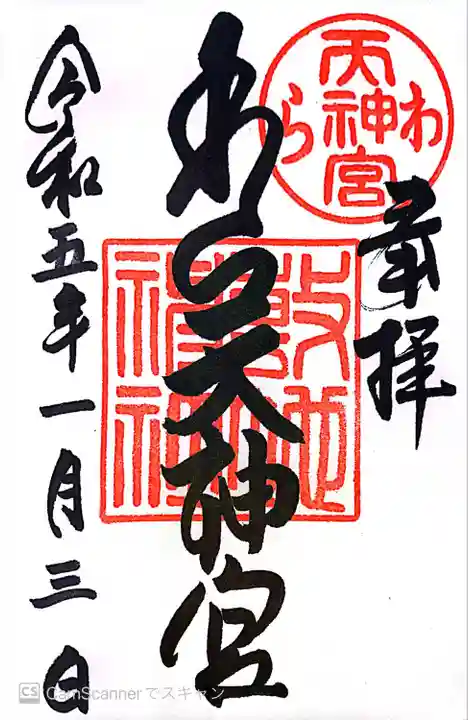 奉拝
わら天神宮
わら天神宮
令和五年一月三日
CS CamScannerでスキャン